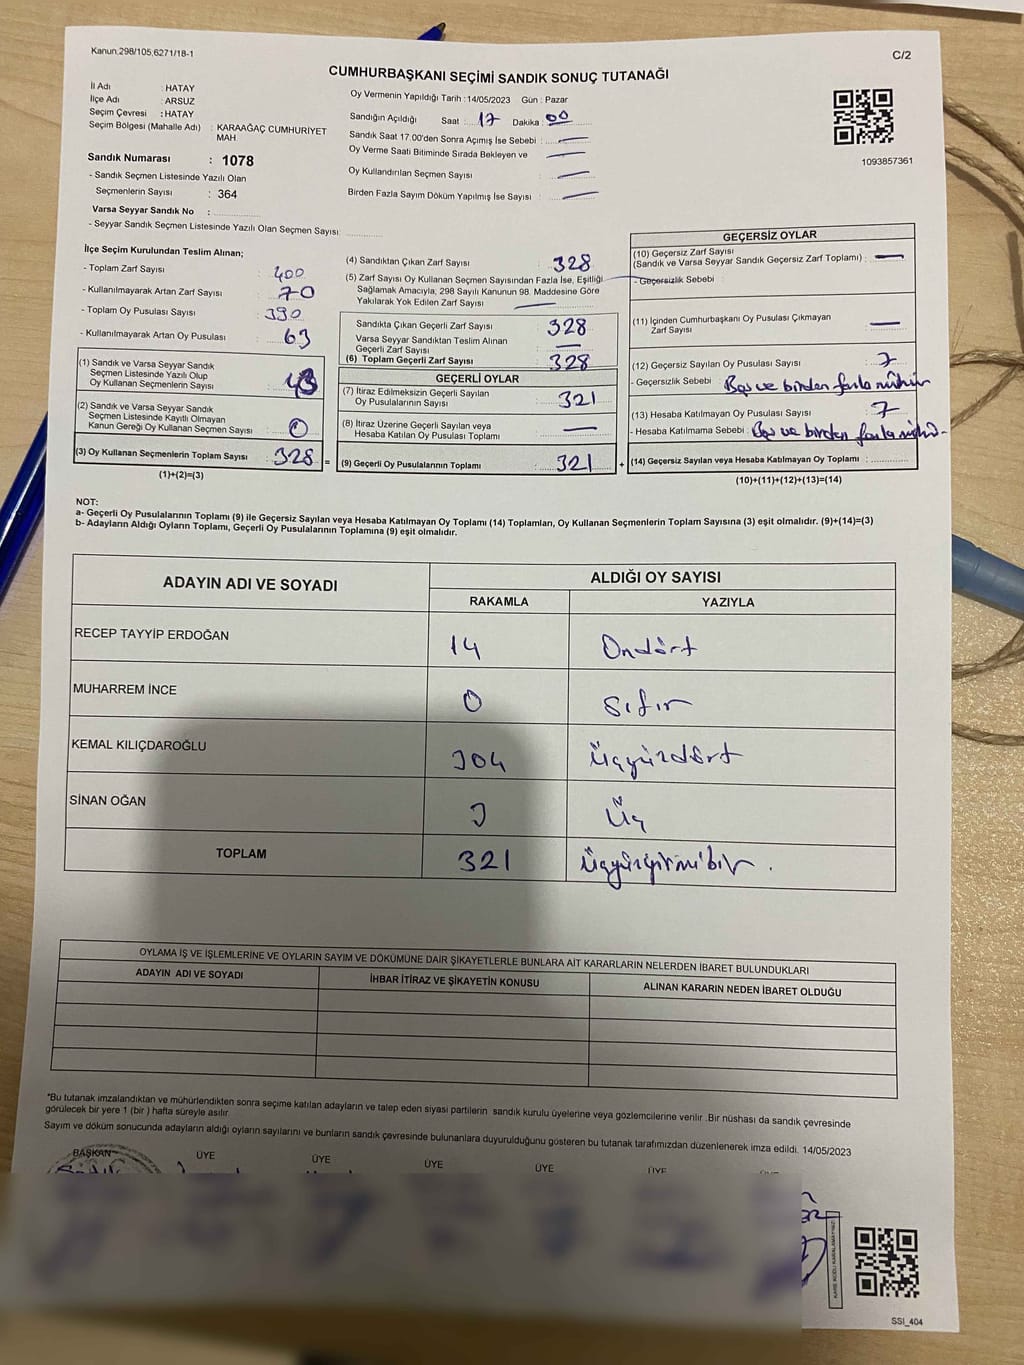 Kanun,298/105,6271/18-1
C/2
CUMHURBAŞKANI SEÇİMİ SANDIK SONUÇ TUTANAĞI
İl Adı : HATAY
İlçe Adı : ARSUZ
Seçim Çevresi : HATAY
Seçim Bölgesi (Mahalle Adı) : KARAAĞAÇ CUMHURİYET
MAH.
Sandık Numarası : 1078
- Sandık Seçmen Listesinde Yazılı Olan
Seçmenlerin Sayısı : 364
Varsa Seyyar Sandık No :
- Seyyar Sandık Seçmen Listesinde Yazılı Olan Seçmen Sayısı:
Oy Vermenin Yapıldığı Tarih : 14/05/2023 Gün : Pazar
Sandığın Açıldığı Saat : 17 Dakika : 00
Sandık Saat 17.00'den Sonra Açımış İse Sebebi : —
Oy Verme Saati Bitiminde Sırada Bekleyen ve —
Oy Kullandırılan Seçmen Sayısı : —
Birden Fazla Sayım Döküm Yapılmış İse Sayısı : —
1093857361
İlçe Seçim Kurulundan Teslim Alınan;
- Toplam Zarf Sayısı : 400
- Kullanılmayarak Artan Zarf Sayısı : 70
- Toplam Oy Pusulası Sayısı : 390
- Kullanılmayarak Artan Oy Pusulası : 63
(1) Sandık ve Varsa Seyyar Sandık
Seçmen Listesinde Yazılı Olup
Oy Kullanan Seçmenlerin Sayısı :
(2) Sandık ve Varsa Seyyar Sandık
Seçmen Listesinde Kayıtlı Olmayan
Kanun Gereği Oy Kullanan Seçmen Sayısı : 0
(3) Oy Kullanan Seçmenlerin Toplam Sayısı : 328
(1)+(2)=(3)
(4) Sandıktan Çıkan Zarf Sayısı : 328
(5) Zarf Sayısı Oy Kullanan Seçmen Sayısından Fazla İse, Eşitliği
Sağlamak Amacıyla, 298 Sayılı Kanunun 98. Maddesine Göre
Yakılarak Yok Edilen Zarf Sayısı : —
Sandıkta Çıkan Geçerli Zarf Sayısı : 328
Varsa Seyyar Sandıktan Teslim Alınan
Geçerli Zarf Sayısı : —
(6) Toplam Geçerli Zarf Sayısı : 328
GEÇERLİ OYLAR
(7) İtiraz Edilmeksizin Geçerli Sayılan
Oy Pusulalarının Sayısı : 321
(8) İtiraz Üzerine Geçerli Sayılan veya
Hesaba Katılan Oy Pusulası Toplamı : —
= (9) Geçerli Oy Pusulalarının Toplamı : 321 +
GEÇERSİZ OYLAR
(10) Geçersiz Zarf Sayısı
(Sandık ve Varsa Seyyar Sandık Geçersiz Zarf Toplamı) : —
- Geçersizlik Sebebi :
(11) İçinden Cumhurbaşkanı Oy Pusulası Çıkmayan
Zarf Sayısı : —
(12) Geçersiz Sayılan Oy Pusulası Sayısı : 7
- Geçersizlik Sebebi : Boş ve birden fazla mühür
(13) Hesaba Katılmayan Oy Pusulası Sayısı : 7
- Hesaba Katılmama Sebebi : Boş ve birden fazla mühür
(14) Geçersiz Sayılan veya Hesaba Katılmayan Oy Toplamı :
(10)+(11)+(12)+(13)=(14)
NOT:
a- Geçerli Oy Pusulalarının Toplamı (9) ile Geçersiz Sayılan veya Hesaba Katılmayan Oy Toplamı (14) Toplamları, Oy Kullanan Seçmenlerin Toplam Sayısına (3) eşit olmalıdır. (9)+(14)=(3)
b- Adayların Aldığı Oyların Toplamı, Geçerli Oy Pusulalarının Toplamına (9) eşit olmalıdır.
ADAYIN ADI VE SOYADI ALDIĞI OY SAYISI
RAKAMLA YAZIYLA
RECEP TAYYİP ERDOĞAN 14 Ondört
MUHARREM İNCE 0 Sıfır
KEMAL KILIÇDAROĞLU 304 Üçyüzdört
SİNAN OĞAN 3 Üç
TOPLAM 321 Üçyüzyirmibir.
OYLAMA İŞ VE İŞLEMLERİNE VE OYLARIN SAYIM VE DÖKÜMÜNE DAİR ŞİKAYETLERLE BUNLARA AİT KARARLARIN NELERDEN İBARET BULUNDUKLARI
ADAYIN ADI VE SOYADI İHBAR İTİRAZ VE ŞİKAYETİN KONUSU ALINAN KARARIN NEDEN İBARET OLDUĞU
*Bu tutanak imzalandıktan ve mühürlendikten sonra seçime katılan adayların ve talep eden siyasi partilerin sandık kurulu üyelerine veya gözlemcilerine verilir .Bir nüshası da sandık çevresinde
görülecek bir yere 1 (bir ) hafta süreyle asılır
Sayım ve döküm sonucunda adayların aldığı oyların sayılarını ve bunların sandık çevresinde bulunanlara duyurulduğunu gösteren bu tutanak tarafımızdan düzenlenerek imza edildi. 14/05/2023
BAŞKAN ÜYE ÜYE ÜYE ÜYE ÜYE
KARE KODU KARALAMAYINIZ!
SSI_404